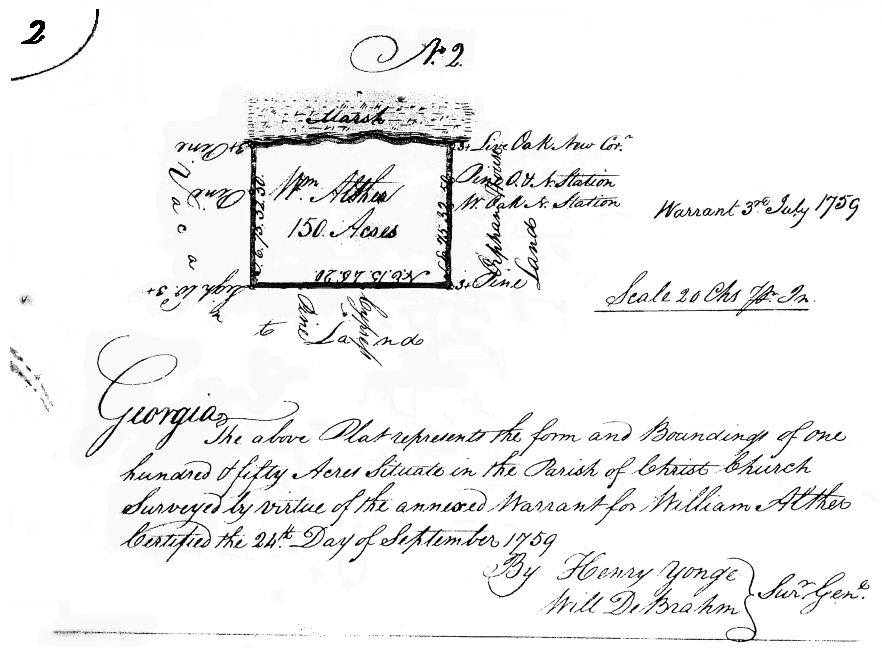 2
No. 2
Marsh
3+ Pine
3+ Live Oak New Cor.r
Pine
Pine O. & N. Station
W. Oak N. Station
Wm. Alther
150 Acres
Warrant 3rd July 1759
Orphan House
Land
Vacant
3+ Pine
Scale 20 Chs Pr In.
Pine
Cypress
Land
Georgia
The above Plat represents the form and Boundings of one
hundred & fifty Acres Situate in the Parish of Christ Church
Surveyed by virtue of the annexed Warrant for William Alther
Certified the 24th. Day of September 1759
By Henry Yonge
Will DeBrahm
Surr Genl.